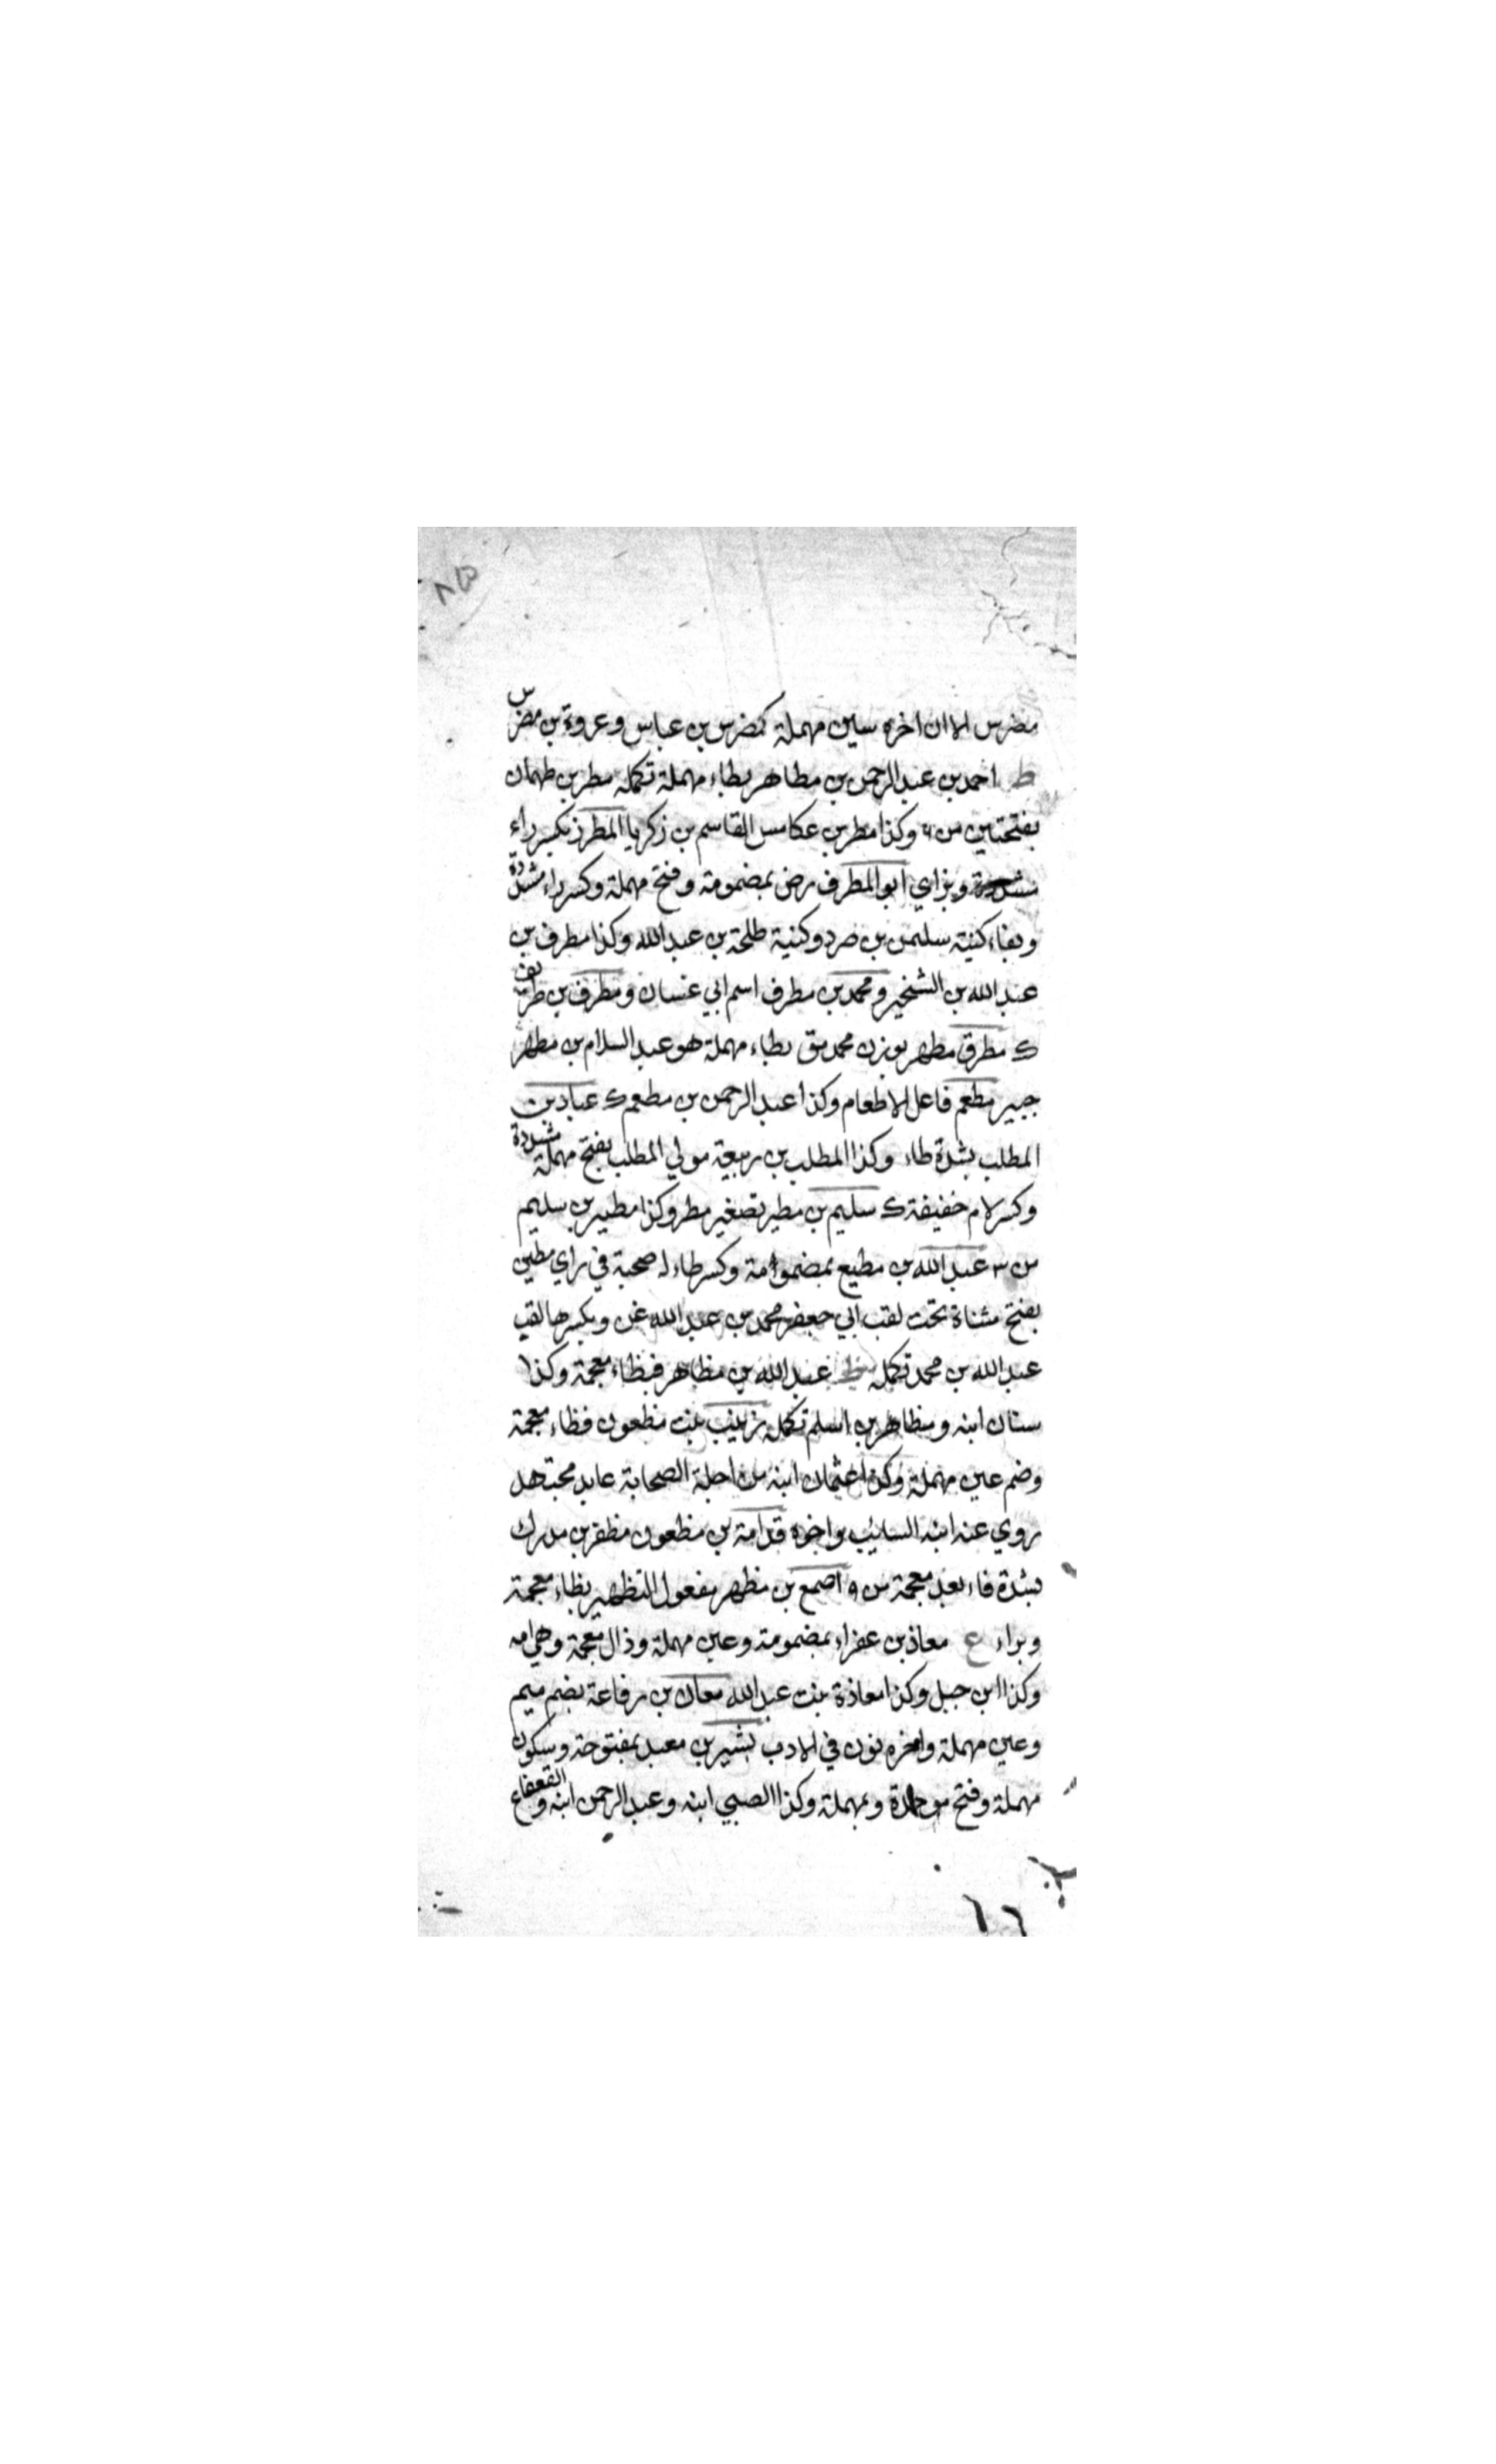 مضرس الا ان اخره سين مهملة كمضرس بن عباس وعروة بن مضرس
ط احمد بن عبد الرحمن بن مطاهر بطاء مهملة تكمله مطر بن طهمان
بفتحتين من ٤ وكذا مطر بن عكامس القاسم بن زكريا المطرز بكسر راء
مشددة وبزاي ابو المطرف رض بمضمومة وفتح مهملة وكسر راء مشددة
وبفاء كنية سليمن بن صرد وكنية طلحة بن عبد الله وكذا مطرف بن
عبد الله بن الشخير ومحمد بن مطرف اسم ابي غسان ومطرف بن طريف
ك مطرق مطهر بوزن محمد مق بطاء مهملة هو عبد السلام بن مطهر
جبير مطعم فاعل الاطعام وكذا عبد الرحمن بن مطعم ك عباد بن
المطلب بشدة طاء وكذا المطلب بن ربيعة مولي المطلب بفتح مهملة مشددة
وكسر لام خفيفة ك سليم بن مطير تصغير مطر وكذا مطير بن سليم
من ٣ عبد الله بن مطيع بمضمومة وكسر طاء له صحبة في راي مطين
بفتح مثناة تحت لقب ابي جعفر محمد بن عبد الله غن وبكسرها لقب
عبد الله بن محمد تكمله ظ عبد الله بن مظاهر فبظاء معجمة وكذا
سنان ابنه ومظاهر بن اسلم تكمله زينب بنت مظعون فظاء معجمة
وضم عين مهملة وكذا عثمان ابنه من اجلة الصحابة عابد مجتهد
روي عنه ابنه السائب واخوه قدامة بن مظعون مظفر بن مدرك
بشدة فاء بعد معجمة من و اصمع بن مظهر مفعول التظهير بظاء معجمة
وبراء ع معاذ بن عفراء بمضمومة وعين مهملة وذال معجمة وهي امه
وكذا ابن جبل وكذا معاذة بنت عبد الله معان بن رفاعة بضم ميم
وعين مهملة واخره نون في الادب بشير بن معبد بمفتوحة وسكون
مهملة وفتح موحدة وبمهملة وكذا الصبي ابنه وعبد الرحمن ابنه والقعقاع